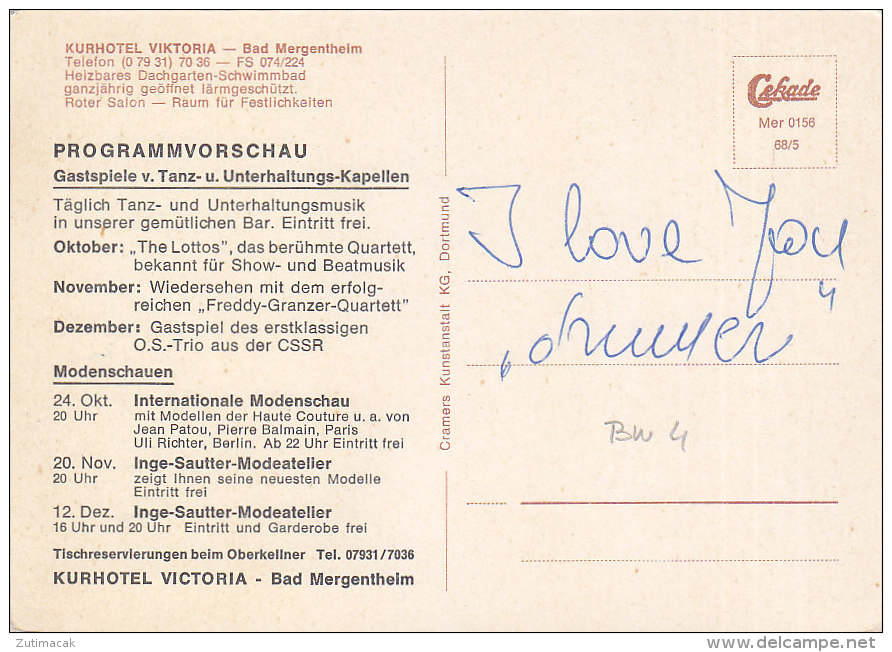 KURHOTEL VIKTORIA — Bad Mergentheim
Telefon (0 79 31) 70 36 — FS 074/224
Heizbares Dachgarten-Schwimmbad
ganzjährig geöffnet lärmgeschützt.
Roter Salon — Raum für Festlichkeiten
PROGRAMMVORSCHAU
Gastspiele v. Tanz- u. Unterhaltungs-Kapellen
Täglich Tanz- und Unterhaltungsmusik
in unserer gemütlichen Bar. Eintritt frei.
Oktober: „The Lottos", das berühmte Quartett,
bekannt für Show- und Beatmusik
November: Wiedersehen mit dem erfolg-
reichen „Freddy-Granzer-Quartett"
Dezember: Gastspiel des erstklassigen
O.S.-Trio aus der CSSR
Modenschauen
24. Okt. Internationale Modenschau
20 Uhr mit Modellen der Haute Couture u. a. von
Jean Patou, Pierre Balmain, Paris
Uli Richter, Berlin. Ab 22 Uhr Eintritt frei
20. Nov. Inge-Sautter-Modeatelier
20 Uhr zeigt Ihnen seine neuesten Modelle
Eintritt frei
12. Dez. Inge-Sautter-Modeatelier
16 Uhr und 20 Uhr Eintritt und Garderobe frei
Tischreservierungen beim Oberkellner Tel. 07931/7036
KURHOTEL VICTORIA - Bad Mergentheim
Cramers Kunstanstalt KG, Dortmund
Cekade
Mer 0156
68/5
I love You
BW 4
Zutimacak
delcampe.net